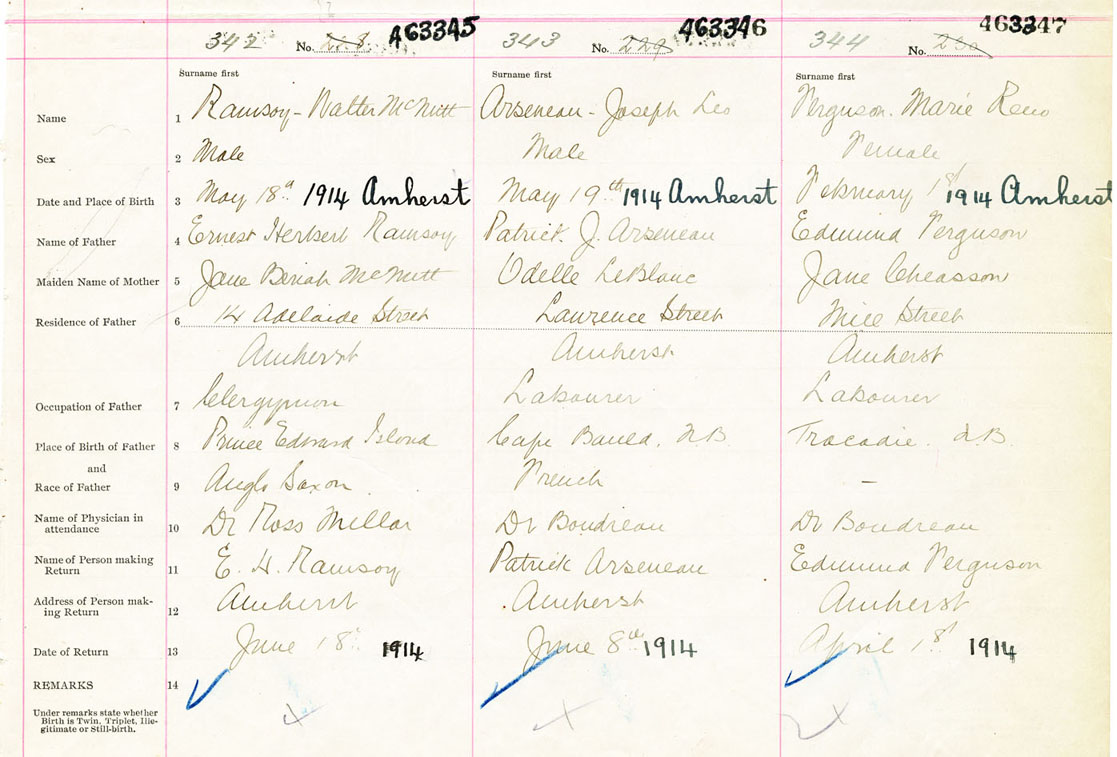 342 No. 228 A63345 343 No. 229 463346 344 No. 230 463347
Surname first Surname first Surname first
Name 1 Ramsay - Walter McNutt Arseneau - Joseph Leo Ferguson. Marie Reno
Sex 2 Male Male Female
Date and Place of Birth 3 May 18th 1914 Amherst May 19th 1914 Amherst February 1st 1914 Amherst
Name of Father 4 Ernest Herbert Ramsay Patrick J. Arseneau Edmund Ferguson
Maiden Name of Mother 5 Jane Beriah McNutt Odelle LeBlanc Jane Cheasson
Residence of Father 6 14 Adelaide Street Lawrence Street Mill Street
Amherst Amherst Amherst
Occupation of Father 7 Clergyman Labourer Labourer
Place of Birth of Father 8 Prince Edward Island Cape Bauld. N.B. Tracadie. N.B.
and
Race of Father 9 Anglo Saxon French –
Name of Physician in attendance 10 Dr Ross Millar Dr Boudreau Dr Boudreau
Name of Person making Return 11 E. H. Ramsay Patrick Arseneau Edmund Ferguson
Address of Person making Return 12 Amherst Amherst Amherst
Date of Return 13 June 1914 June 8th 1914 April 1st 1914
REMARKS 14
Under remarks state whether
Birth is Twin, Triplet, Ille-
gitimate or Still-birth.